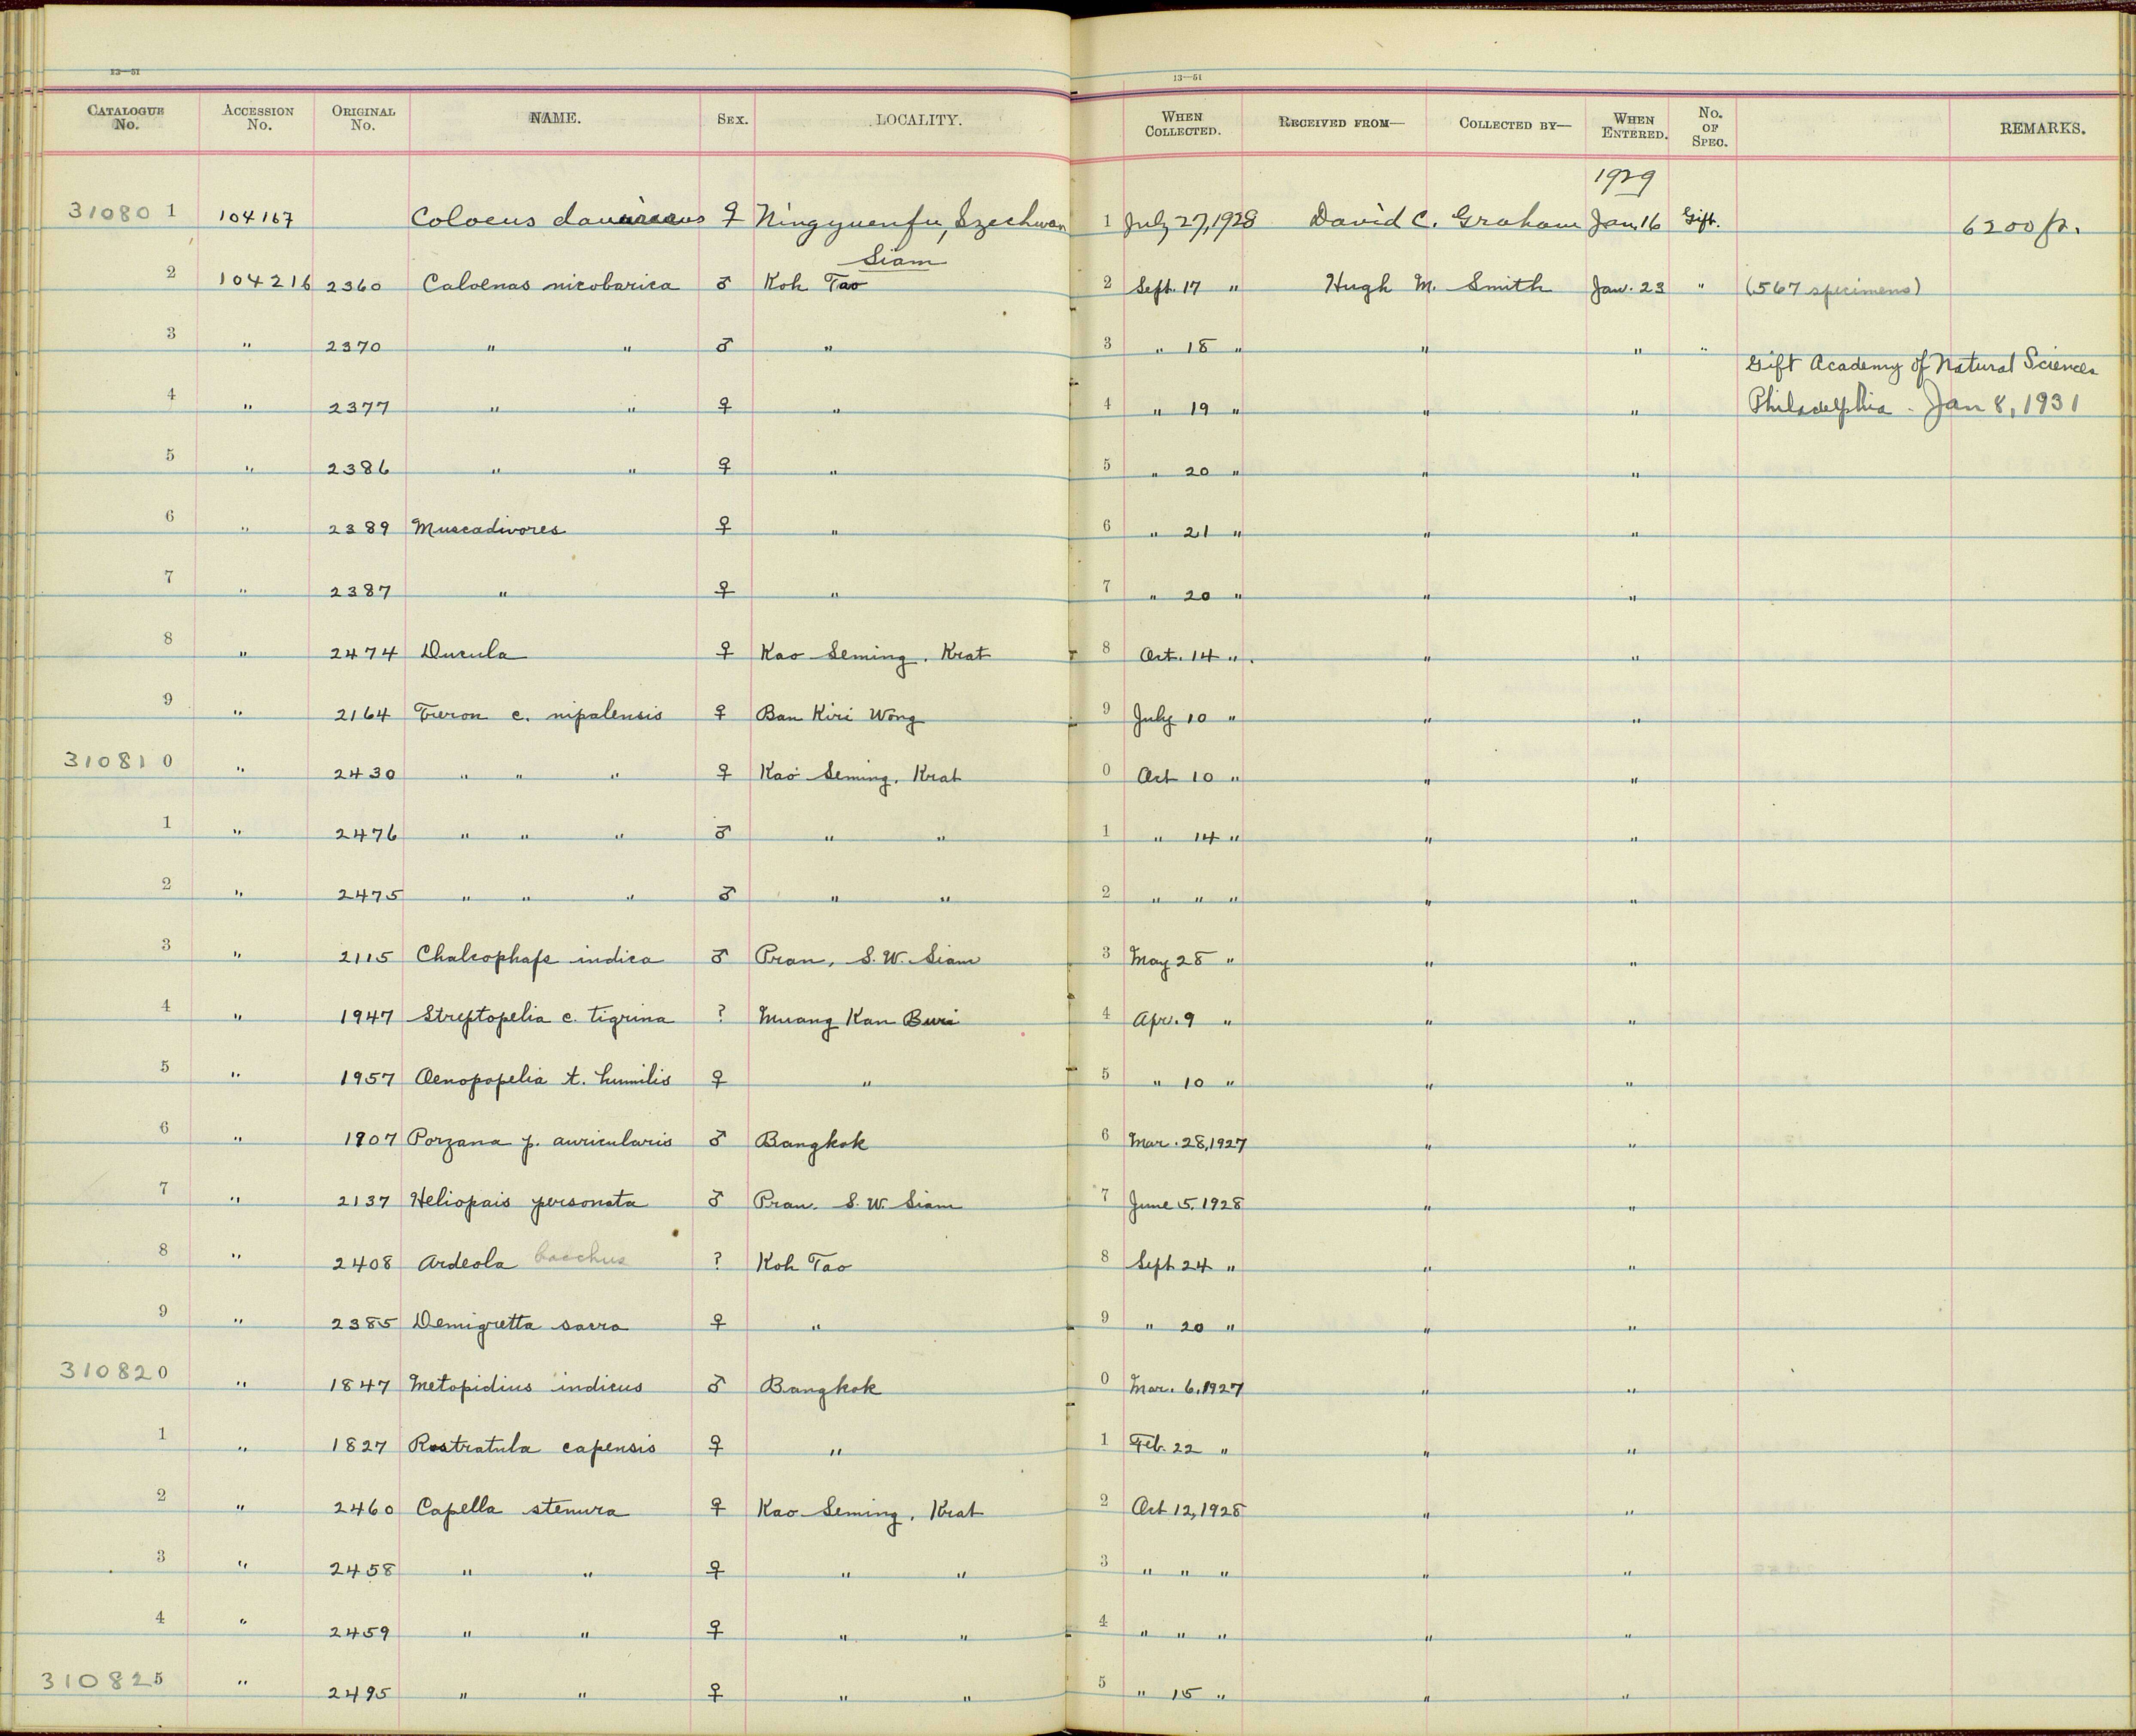 13—51 13—51
CATALOGUE No. ACCESSION No. ORIGINAL No. NAME. SEX. LOCALITY. WHEN COLLECTED. RECEIVED FROM— COLLECTED BY— WHEN ENTERED. No. OF SPEC. REMARKS.
1929
310801 104167 Coloeus dauuricus ♀ Ningyuenfu, Szechwan 1 July 27, 1928 David C. Graham Jan. 16 Gift. 6200 ft.
Siam
2 104216 2360 Caloenas nicobarica ♂ Koh Tao 2 Sept. 17 " Hugh M. Smith Jan. 23 " (567 specimens)
3 " 2370 " " ♂ " 3 " 18 " " " "
Gift Academy of Natural Sciences
4 " 2377 " " ♀ " 4 " 19 " " " Philadelphia - Jan 8, 1931
5 " 2386 " " ♀ " 5 " 20 " " "
6 " 2389 Muscadivores ♀ " 6 " 21 " " "
7 " 2387 " ♀ " 7 " 20 " " "
8 " 2474 Ducula ♀ Kao Seming, Krat 8 Oct. 14 " " "
9 " 2164 Treron c. nipalensis ♀ Ban Kiri Wong 9 July 10 " " "
310810 " 2430 " " " ♀ Kao Seming, Krat 0 Oct 10 " " "
1 " 2476 " " " ♂ " " 1 " 14 " " "
2 " 2475 " " " ♂ " " 2 " " " " "
3 " 2115 Chalcophaps indica ♂ Pran, S.W. Siam 3 May 28 " " "
4 " 1947 Streptopelia c. tigrina ? Muang Kan Buri 4 Apr. 9 " " "
5 " 1957 Oenopopelia t. humilis ♀ " 5 " 10 " " "
6 " 1907 Porzana p. auricularis ♂ Bangkok 6 Mar. 28, 1927 " "
7 " 2137 Heliopais personata ♂ Pran. S.W. Siam 7 June 5, 1928 " "
8 " 2408 Ardeola bacchus ? Koh Tao 8 Sept 24 " " "
9 " 2385 Demigretta sacra ♀ " 9 " 20 " " "
310820 " 1847 Metopidius indicus ♂ Bangkok 0 Mar. 6, 1927 " "
1 " 1827 Rostratula capensis ♀ " 1 Feb. 22 " " "
2 " 2460 Capella stenura ♀ Kao Seming, Krat 2 Oct 12, 1928 " "
3 " 2458 " " ♀ " " 3 " " " " "
4 " 2459 " " ♀ " " 4 " " " " "
310825 " 2495 " " ♀ " " 5 " 15 " " "